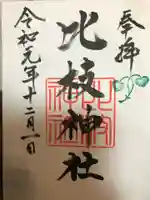 奉拝
比枝神社
令和元年十二月一日